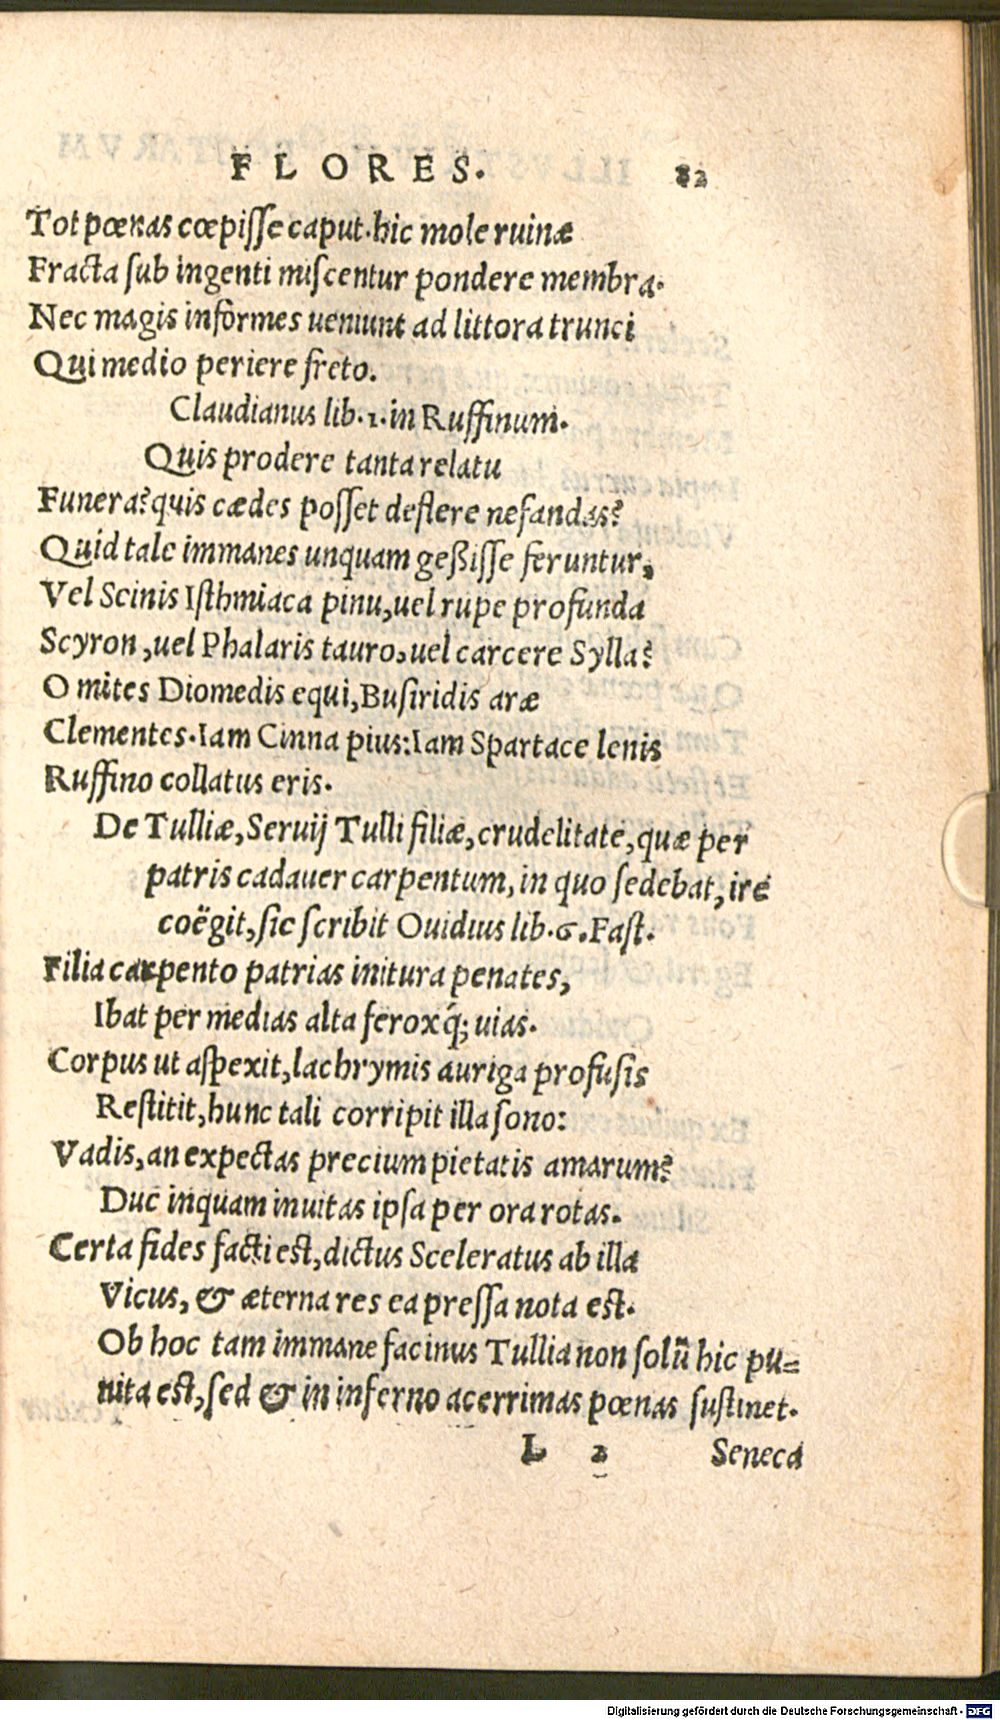 FLORES. 82
Tot pœnas cœpisse caput. hic mole ruinæ
Fracta sub ingenti miscentur pondere membra.
Nec magis informes ueniunt ad littora trunci
Qui medio periere freto.
Claudianus lib. 1. in Ruffinum.
Quis prodere tanta relatu
Funera? quis cædes posset deflere nefandas?
Quid tale immanes unquam geßisse feruntur,
Vel Scinis Isthmiaca pinu, uel rupe profunda
Scyron, uel Phalaris tauro, uel carcere Sylla?
O mites Diomedis equi, Busiridis aræ
Clementes. Iam Cinna pius: Iam Spartace lenis
Ruffino collatus eris.
De Tulliæ, Seruij Tulli filiæ, crudelitate, quæ per
patris cadauer carpentum, in quo sedebat, ire
coëgit, sic scribit Ouidius lib. 6. Fast.
Filia carpento patrias initura penates,
Ibat per medias alta feroxq́; uias.
Corpus ut aspexit, lachrymis auriga profusis
Restitit, hunc tali corripit illa sono:
Vadis, an expectas precium pietatis amarum?
Duc inquam inuitas ipsa per ora rotas.
Certa fides facti est, dictus Sceleratus ab illa
Vicus, & æterna res ea pressa nota est.
Ob hoc tam immane facinus Tullia non solũ hic pu=
nita est, sed & in inferno acerrimas pœnas sustinet.
L 2 Seneca
Digitalisierung gefördert durch die Deutsche Forschungsgemeinschaft - DFG